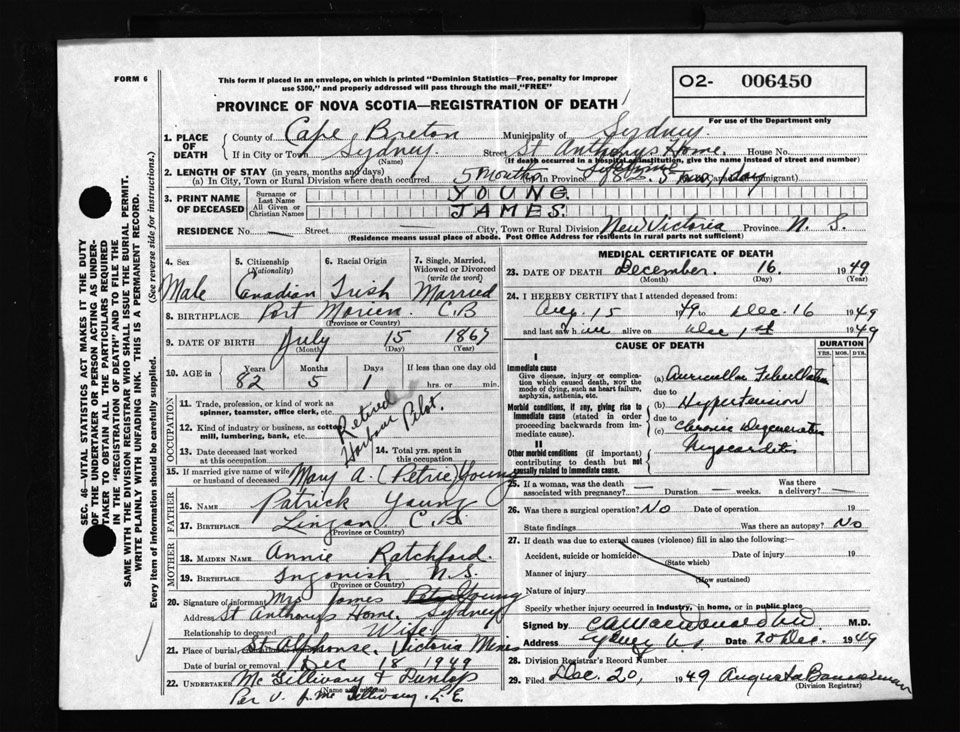 FORM 6
This form if placed in an envelope, on which is printed "Dominion Statistics—Free, penalty for improper
use $300," and properly addressed will pass through the mail "FREE"
O2- 006450
PROVINCE OF NOVA SCOTIA—REGISTRATION OF DEATH
For use of the Department only
1. PLACE OF DEATH
County of Cape Breton Municipality of Sydney.
If in City or Town Sydney. Street St Anthonys Home. House No.
(Name) (If death occurred in a hospital or institution, give the name instead of street and number)
2. LENGTH OF STAY (in years, months and days)
(a) In City, Town or Rural Division where death occurred 5 Months (b) in Province
3. PRINT NAME OF DECEASED
Surname or Last Name YOUNG
All Given or Christian Names JAMES.
RESIDENCE No. — Street — City, Town or Rural Division New Victoria Province N. S.
(Residence means usual place of abode. Post Office Address for residents in rural parts not sufficient)
4. Sex 5. Citizenship (Nationality) 6. Racial Origin 7. Single, Married, Widowed or Divorced (write the word)
Male Canadian Irish Married
8. BIRTHPLACE Port Morien. C.B
(Province or Country)
9. DATE OF BIRTH July 15 1867
(Month) (Day) (Year)
10. AGE in Years Months Days If less than one day old
82 5 1 hrs. or min.
OCCUPATION
11. Trade, profession, or kind of work as
spinner, teamster, office clerk, etc.
12. Kind of industry or business, as cotton
mill, lumbering, bank, etc.
Retired
Harbour Pilot.
13. Date deceased last worked
at this occupation
14. Total yrs. spent in
this occupation
15. If married give name of wife
or husband of deceased Mary A. (Petrie) Young
FATHER
16. NAME Patrick Young
17. BIRTHPLACE Lingan. C.B.
(Province or Country)
MOTHER
18. MAIDEN NAME Annie Ratchford.
19. BIRTHPLACE Ingonish N.S.
(Province or Country)
20. Signature of informant Mrs James Young
Address St Anthonys Home, Sydney
Relationship to deceased Wife
21. Place of burial, St Alphonse. Victoria Mines
Date of burial or removal Dec 18 1949
22. UNDERTAKER McGillivary & Dunlop
(Name and address)
Per J. McGillivary. L.E.
MEDICAL CERTIFICATE OF DEATH
23. DATE OF DEATH December. 16 1949
(Month) (Day) (Year)
24. I HEREBY CERTIFY that I attended deceased from:
Aug. 15 1949 to Dec. 16 1949
and last saw him alive on Dec 1st 1949
CAUSE OF DEATH
DURATION
YRS. MOS. DYS.
I
Immediate cause
Give disease, injury or complication which caused death, NOT the
mode of dying, such as heart failure,
asphyxia, asthenia, etc.
(a) Auricular Fibrillation
due to
Morbid conditions, if any, giving rise to
immediate cause (stated in order
proceeding backwards from immediate cause).
(b) Hypertension
due to
(c) Chronic Degenerative
Myocarditis
II
Other morbid conditions (if important)
contributing to death but not
causally related to immediate cause.
25. If a woman, was the death
associated with pregnancy? — Duration — weeks. Was there
a delivery? —
26. Was there a surgical operation? No Date of operation. 19
State findings Was there an autopsy? No
27. If death was due to external causes (violence) fill in also the following:—
Accident, suicide or homicide. Date of injury 19
(State which)
Manner of injury
(How sustained)
Nature of injury
Specify whether injury occurred in industry, in home, or in public place
Signed by M.D.
Address Sydney N.S. Date 20 Dec. 1949
28. Division Registrar's Record Number
29. Filed Dec. 20, 1949 Augusta Bannerman
(Division Registrar)
SEC. 46—VITAL STATISTICS ACT MAKES IT THE DUTY
OF THE UNDERTAKER OR PERSON ACTING AS UNDERTAKER
TO OBTAIN ALL THE PARTICULARS REQUIRED
IN THE "REGISTRATION OF DEATH" AND TO FILE THE
SAME WITH THE DIVISION REGISTRAR WHO SHALL ISSUE THE BURIAL PERMIT.
WRITE PLAINLY WITH UNFADING INK. THIS IS A PERMANENT RECORD.
Every item of information should be carefully supplied. (See reverse side for instructions.)